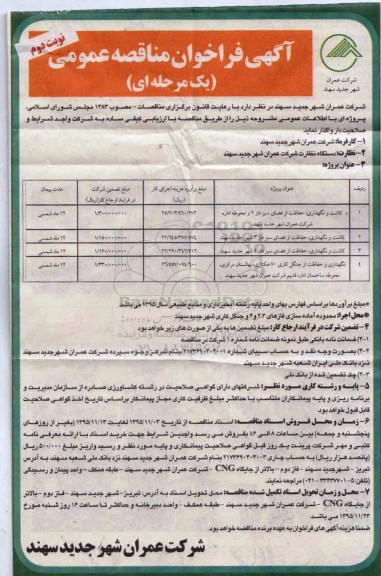 نوبت دوم
آگهی فراخوان مناقصه عمومی
(یک مرحله ای)
شرکت عمران
شهر جدید سهند
شرکت عمران شهر جدید سهند در نظر دارد با رعایت قانون برگزاری مناقصات - مصوب ۱۳۸۳ مجلس شورای اسلامی،
پروژه ای با اطلاعات عمومی مشروحه ذیل را از طریق مناقصه با ارزیابی کیفی ساده به شرکت واجد شرایط و
صلاحیت دار واگذار نماید
۱- کارفرما: شرکت عمران شهر جدید سهند
۲- نظارت: دستگاه نظارت شرکت عمران شهر جدید سهند
۳- عنوان پروژه:
ردیف عنوان پروژه مبلغ برآورد هزینه اجرای کار (ریال) مبلغ تضمین شرکت در فرایند ارجاع کار(ریال) مدت پیمان
۱ کاشت و نگهداری، حفاظت از فضای سبز فاز ۲ و محوطه اداره شرکت عمران شهر جدید سهند ۱۲ ماه شمسی
۲ کاشت و نگهداری، حفاظت از فضای سبز فاز ۳ ۱۲ ماه شمسی
۳ کاشت و نگهداری، حفاظت از فضای سبز فاز ۴ ۱۲ ماه شمسی
۴ نگهداری و حفاظت از جنگل کاری ۷۰ هکتاری ۱۲ ماه شمسی
محوطه ساختمان اداره قدیم شرکت عمران شهر جدید سهند
*مبلغ برآوردها براساس فهارس بهای واحد پایه رشته آبخیزداری و منابع طبیعی سال ۱۳۹۵ می باشد
*محل اجرا: محدوده آماده سازی فازهای ۲،۳ و ۴ و جنگل کاری شهر جدید سهند
۴- تضمین شرکت در فرآیند ارجاع کار: مبلغ تضمین ها به یکی از صورت های زیر خواهد بود
۴-۱) ضمانت نامه بانکی طبق نمونه ضمانت نامه شماره ۱ شرکت در مناقصه
۴-۲) بصورت وجه نقد و به حساب سیبای شماره بنام تمرکز وجوه سپرده شرکت عمران شهرجدید سهند
نزد بانک ملی ایران شعبه شهر جدید سهند
۴-۳) چک تضمین شده از بانک ملی
۵- پایه و رشته کاری مورد نظر: شرکتهای دارای گواهی صلاحیت در رشته کشاورزی صادره از سازمان مدیریت و
برنامه ریزی و پایه پیمانکاران متناسب با حداکثر مبلغ ظرفیت کاری مجاز پیمانکار براساس تاریخ اخذ گواهی صلاحیت
قابل قبول خواهد بود
۶- زمان و محل فروش اسناد مناقصه: اسناد مناقصه از تاریخ ۱۳۹۵/۱۱/۰۳ لغایت ۱۳۹۵/۱۱/۱۳ (بغیر از روزهای
پنجشنبه و جمعه) بین ساعات ۸ الی ۱۶ بفروش می رسد واجدین شرایط جهت خرید اسناد با ارائه معرفی نامه
کتبی و مهر شرکت پرینت یک روز قبل گواهی صلاحیت پیمانکاری و پایه مورد نظر و رسید واریز مبلغ ۵۰۰/۰۰۰ ریال
(پانصد هزار ریال) به حساب جاری بنام شرکت عمران شهر جدید سهند نزد بانک ملی شعبه سهند، به آدرس
تبریز - شهر جدید سهند - فاز دوم - بالاتر از جایگاه CNG - شرکت عمران شهر جدید سهند - طبقه همکف - واحد پیمان و رسیدگی
مراجعه نمایند
۷- محل و زمان تحویل اسناد تکمیل شده مناقصه: محل تحویل اسناد به آدرس تبریز - شهر جدید سهند - فاز دوم - بالاتر
از جایگاه CNG - شرکت عمران شهر جدید سهند - طبقه همکف - واحد دبیرخانه و حداکثر تا ساعت ۱۶ روز شنبه مورخ
۱۳۹۵/۱۱/۲۳ می باشد
ضمنا هزینه آگهی های فراخوان به عهده برنده مناقصه خواهد بود
شرکت عمران شهر جدید سهند